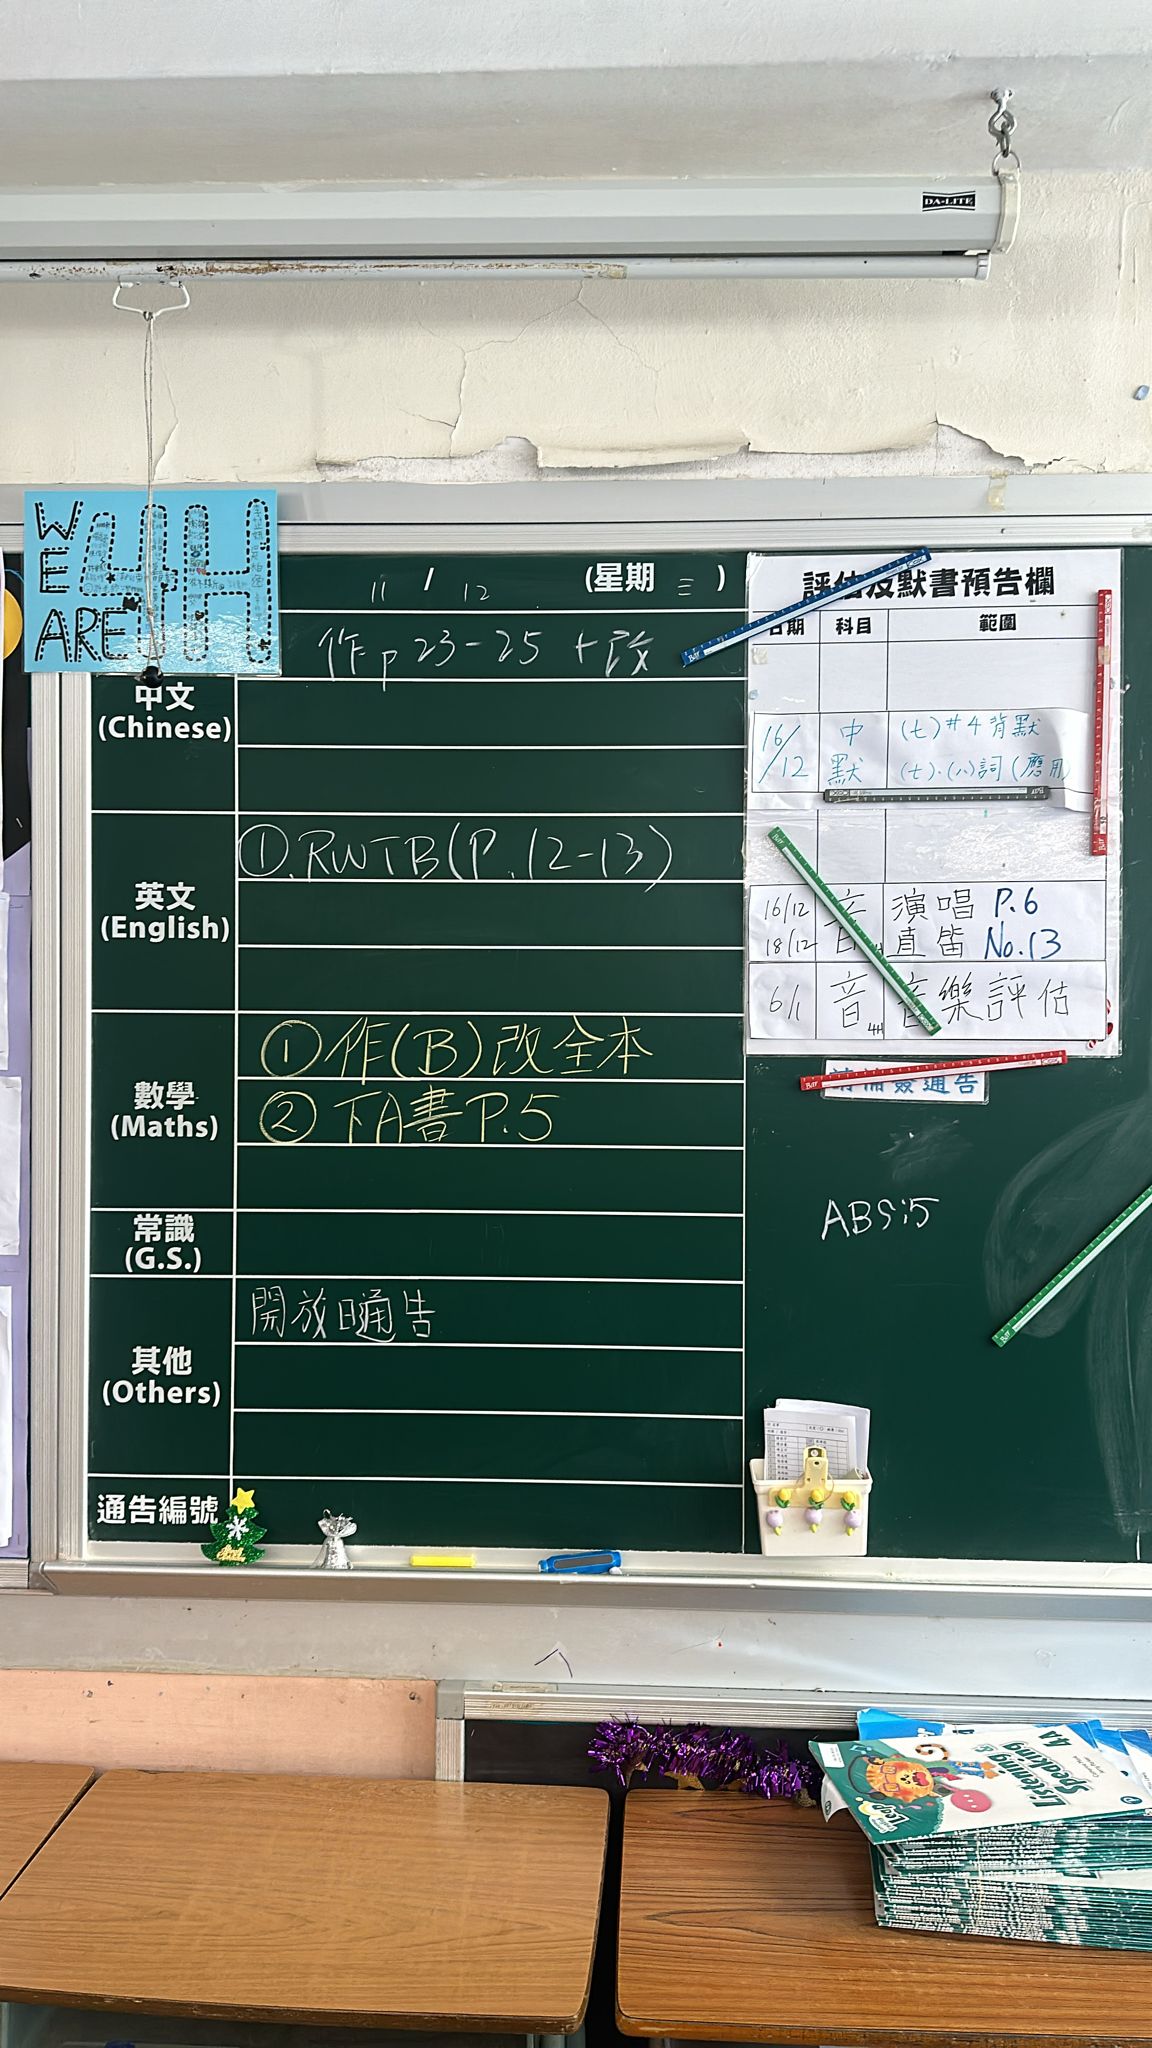 DA-LITE
WE
ARE
4H
11 / 12 (星期三)
作p23-25 +改
中文
(Chinese)
英文
(English)
①.RWTB(P.12-13)
數學
(Maths)
①作(B)改全本
②下A書P.5
常識
(G.S.)
其他
(Others)
開放日通告
通告編號
評估及默書預告欄
日期 科目 範圍
16/12 中默 (七)#4背默
(七)、(八)詞(應用)
16/12 音 演唱 P.6
18/12 直笛 No.13
6/1 音 4H 音樂評估
通告
ABS:5
Listening &
Speaking
4A